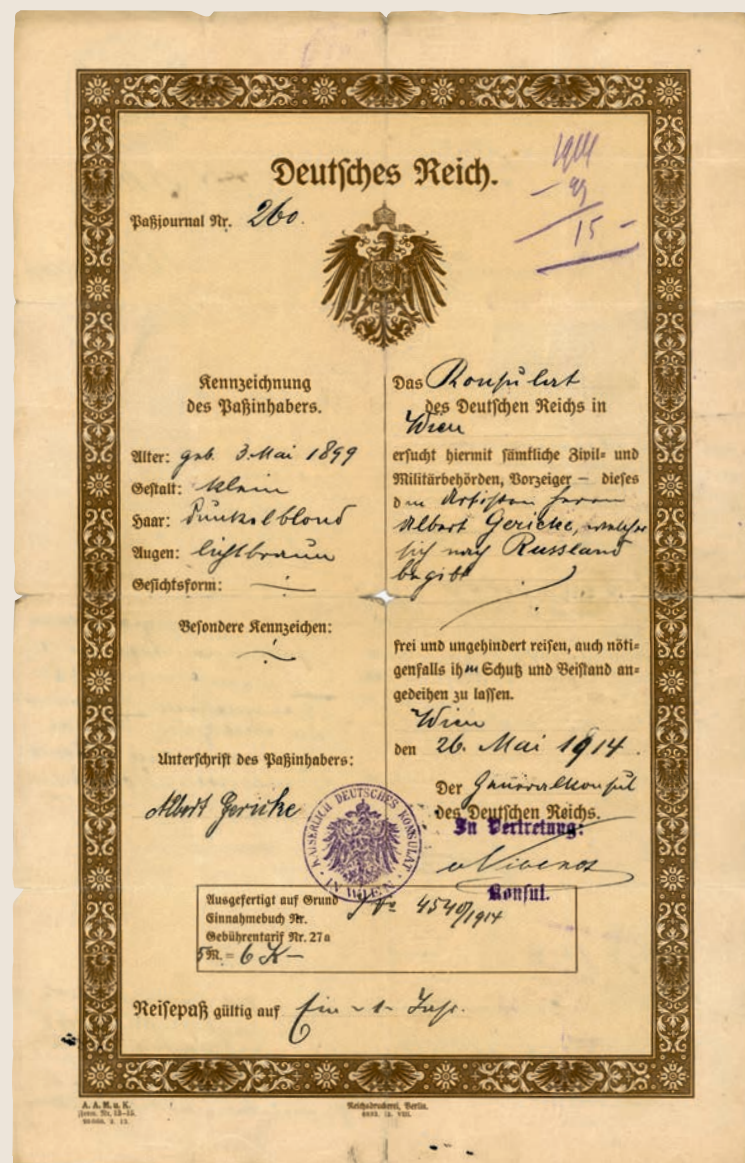 1914
- 99
15 -
Deutsches Reich.
Paßjournal Nr. 260.
Kennzeichnung
des Paßinhabers.
Alter: geb. 3. Mai 1899
Gestalt: klein
Haar: dunkelblond
Augen: lichtbraun
Gesichtsform: —
Besondere Kennzeichen:
—
Unterschrift des Paßinhabers:
Albert Gericke
Das Konsulat
des Deutschen Reichs in
Wien
ersucht hiermit sämtliche Zivil- und
Militärbehörden, Vorzeiger — dieses
den Artisten Herrn
Albert Gericke, welcher
sich nach Russland
begibt
frei und ungehindert reisen, auch nöti-
genfalls ihm Schutz und Beistand an-
gedeihen zu lassen.
Wien
den 26. Mai 1914.
Der Generalkonsul
des Deutschen Reichs.
In Vertretung:
Konsul.
KAISERLICH DEUTSCHES KONSULAT
IN WIEN
Ausgefertigt auf Grund
Einnahmebuch Nr. 4540/1914
Gebührentarif Nr. 27a
5 M. = 6 K —
Reisepaß gültig auf Ein - 1 - Jahr.
A. A. M. u. K.
Reichsdruckerei, Berlin.